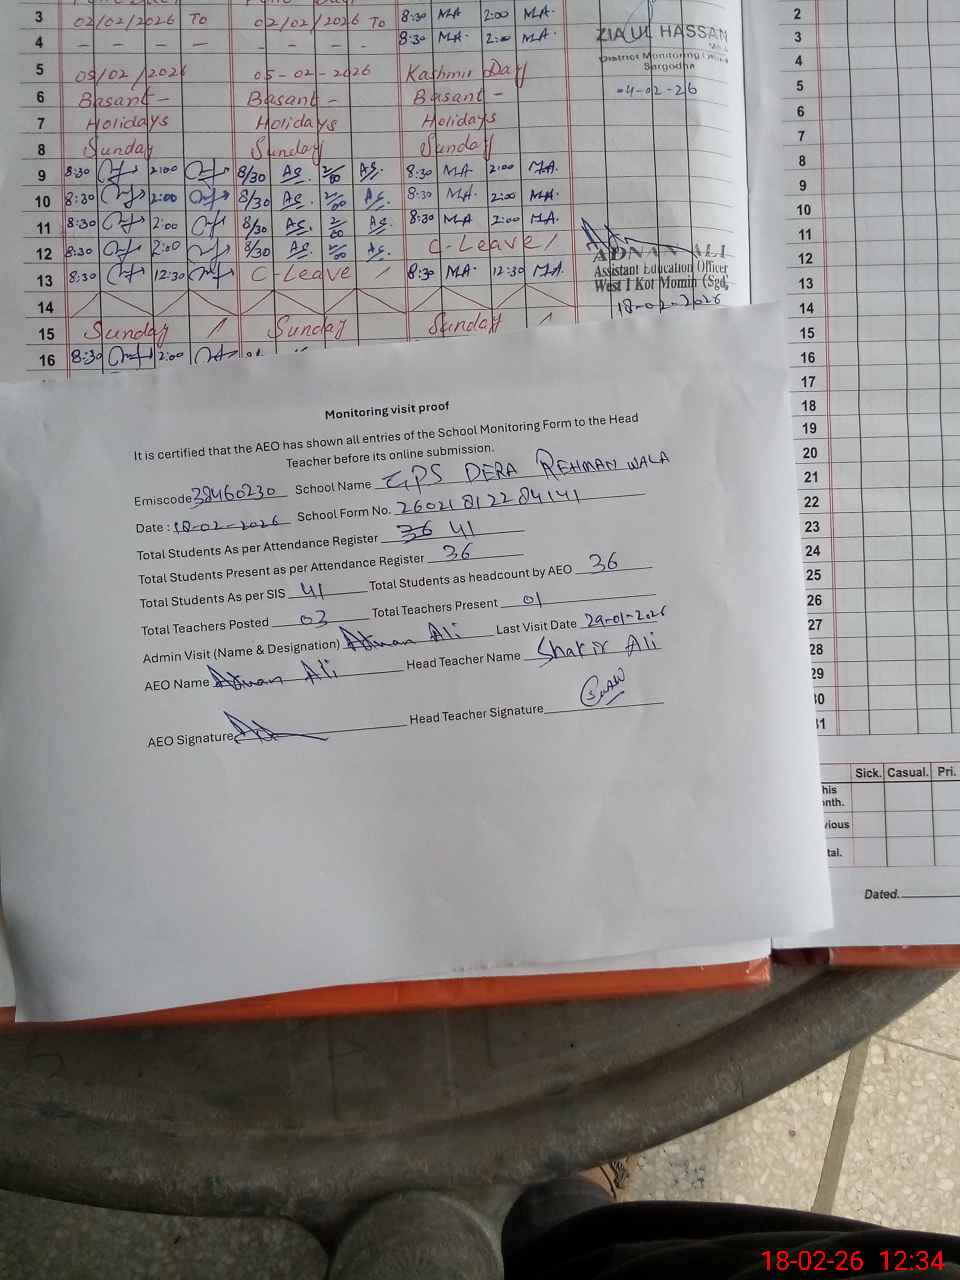 3 02/02/2026 To 02/02/2026 To 8:30 MA 2:00 MA.
4 – – – – – – – – 8:30 MA. 2:00 MA.
ZIA UL HASSAN
District Monitoring Officer
Sargodha
04-02-26
5 05/02/2026 05-02-2026 Kashmir Day
6 Basant – Basant – Basant –
7 Holidays Holidays Holidays
8 Sunday Sunday Sunday
9 8:30 2:00 8/30 AS. 2/00 AS. 8:30 MA. 2:00 MA.
10 8:30 2:00 8/30 AS. 2/00 AS. 8:30 MA. 2:00 MA.
11 8:30 2:00 8/30 AS. 2/00 AS. 8:30 MA 2:00 MA.
12 8:30 2:00 8/30 AS. 2/00 AS. C-Leave/
13 8:30 12:30 C-Leave / 8:30 MA. 12:30 MA.
ADNAN ALI
Assistant Education Officer
West I Kot Momin (Sgd)
18-02-2026
14
15 Sunday / Sunday Sunday /
16 8:30 2:00
Monitoring visit proof
It is certified that the AEO has shown all entries of the School Monitoring Form to the Head
Teacher before its online submission.
Emiscode 38460230 School Name GPS DERA REHMAN WALA
Date : 18-02-2026 School Form No. 26021812284141
Total Students As per Attendance Register 36 41
Total Students Present as per Attendance Register 36
Total Students As per SIS 41 Total Students as headcount by AEO 36
Total Teachers Posted 03 Total Teachers Present 01
Admin Visit (Name & Designation) Adnan Ali Last Visit Date 29-01-2026
AEO Name Adnan Ali Head Teacher Name Shakir Ali
AEO Signature Head Teacher Signature
2
3
4
5
6
7
8
9
10
11
12
13
14
15
16
17
18
19
20
21
22
23
24
25
26
27
28
29
30
31
Sick. Casual. Pri.
Dated.
18-02-26 12:34